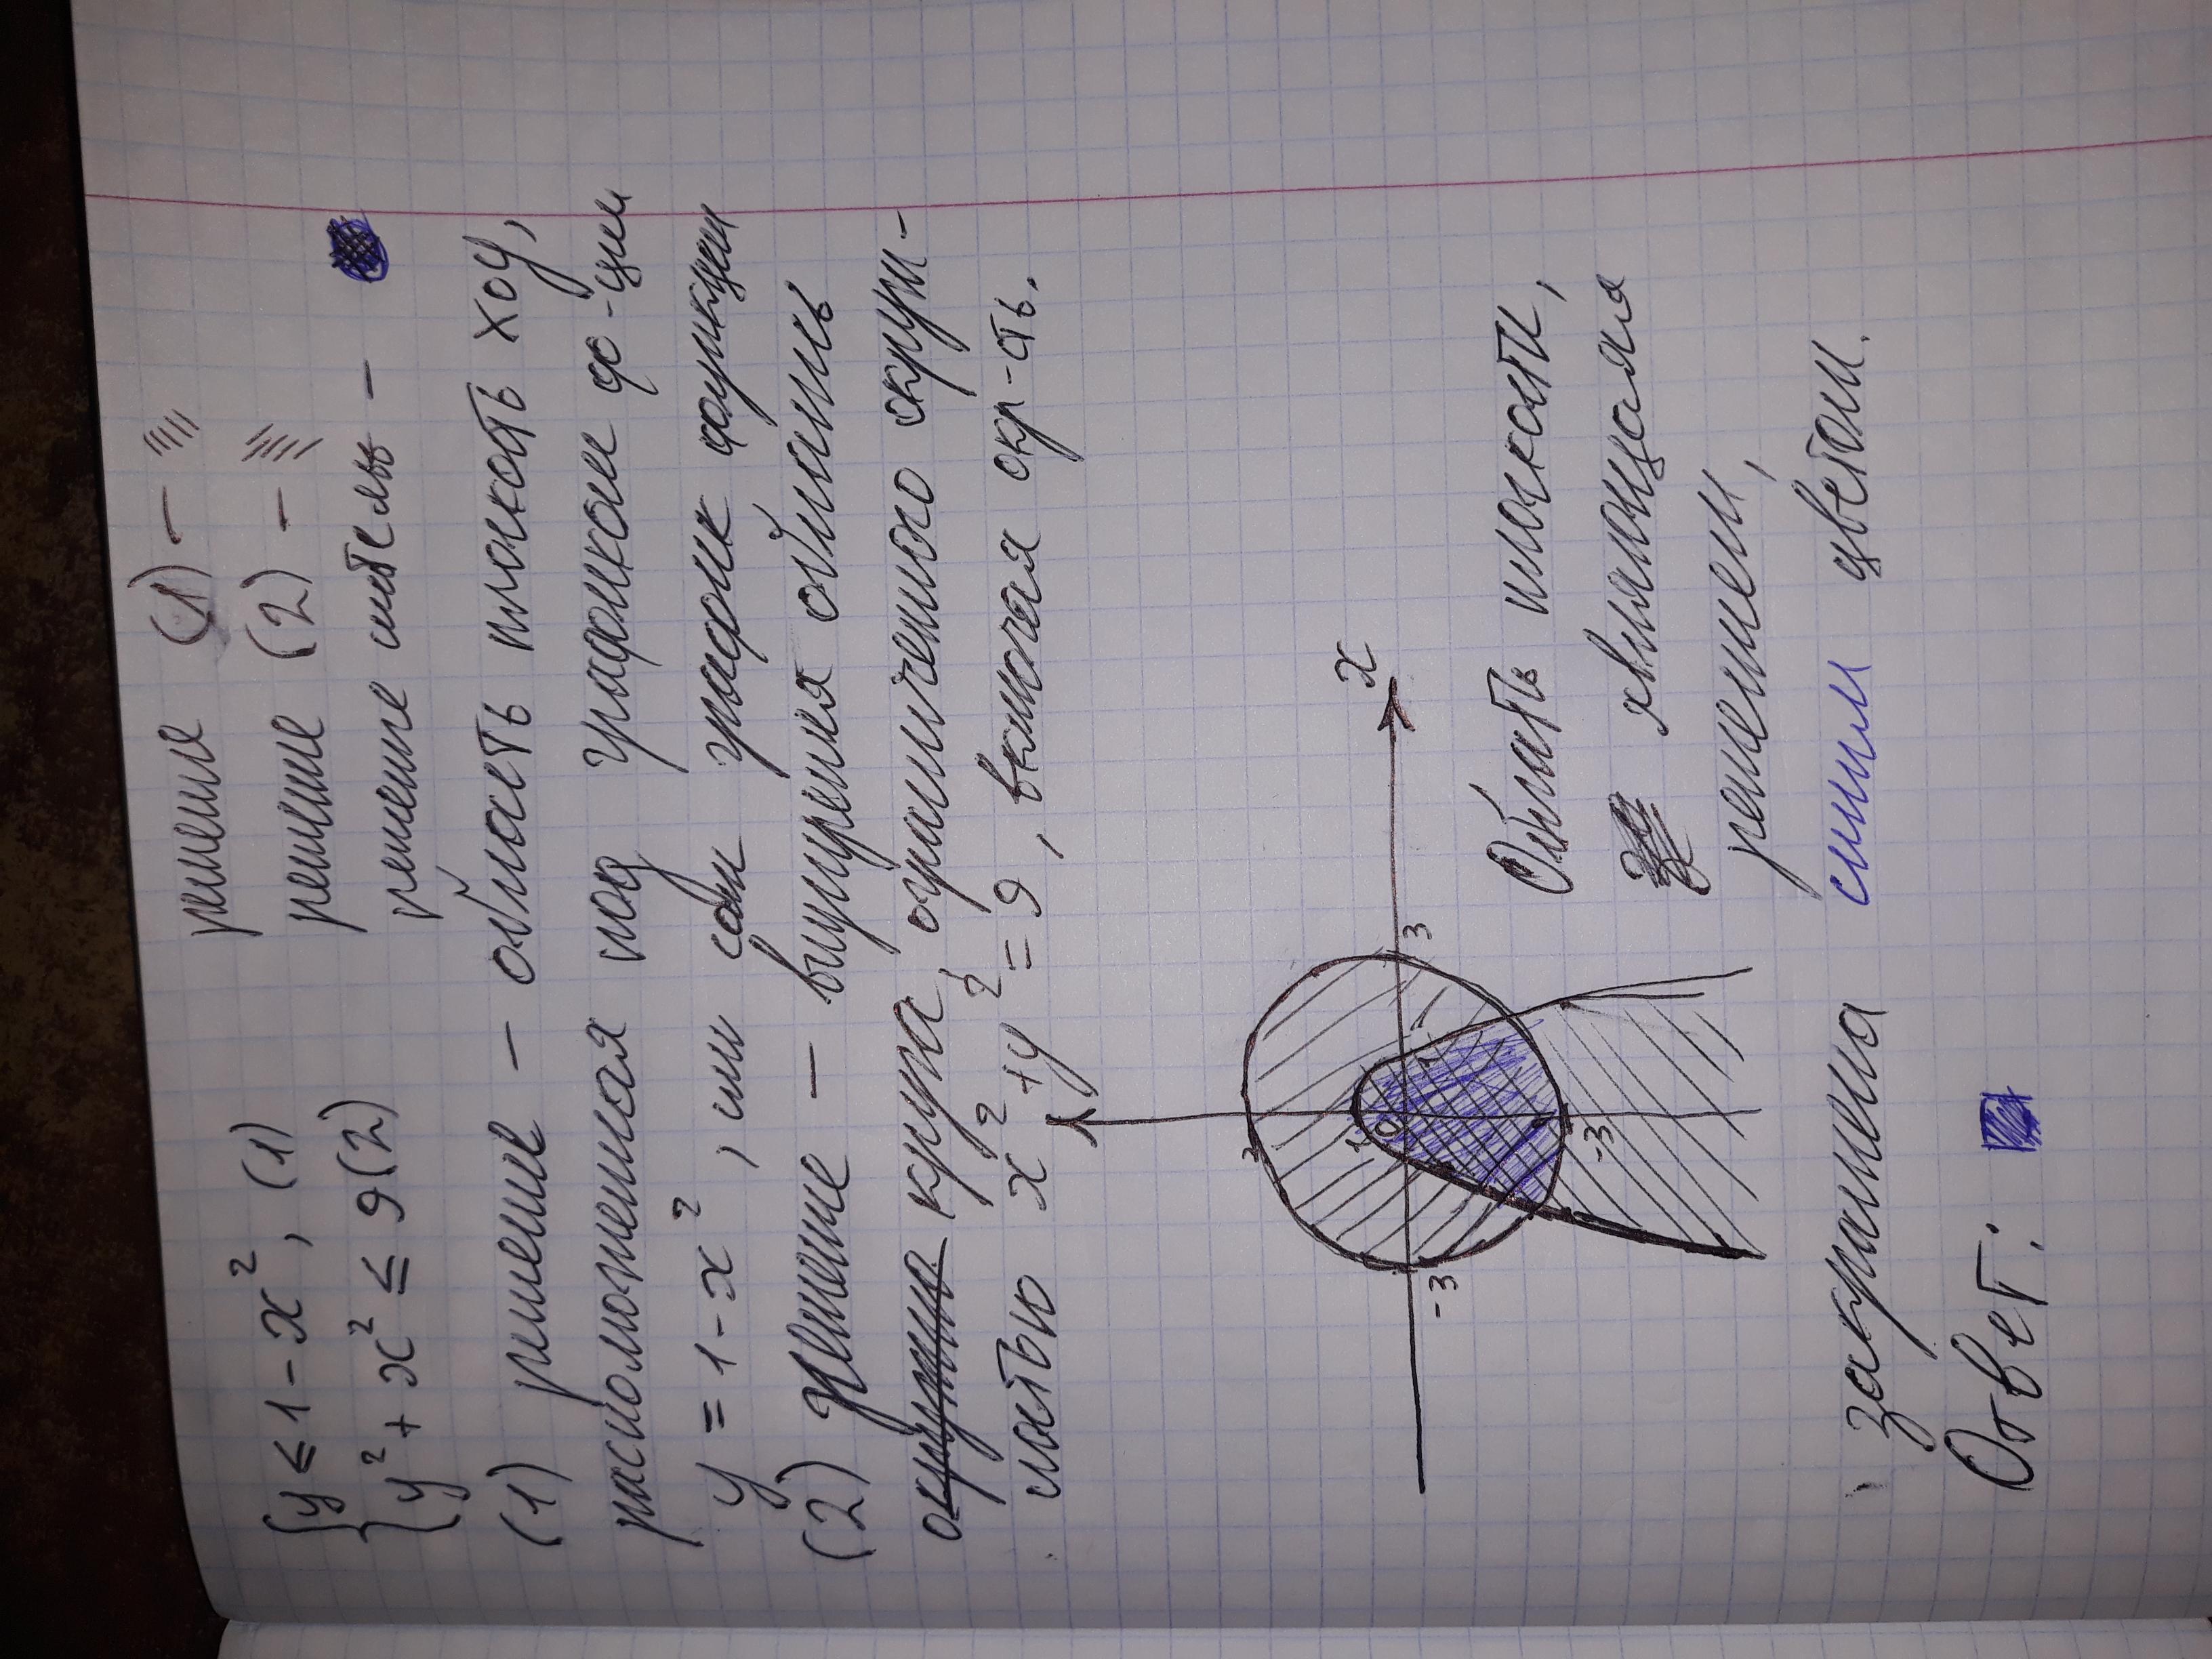 { y ≤ 1 - x², (1)
{ y² + x² ≤ 9 (2)
решение (1) -
решение (2) -
решение системы -
(1) решение - область плоскость xOy,
расположенная под графиком ф-ции
y = 1 - x², или сам график функции
(2) решение - внутренняя область
окружно круга ограниченного окруж-
ностью x² + y² = 9, включая окр-сть.
x
3
1
0
-3
3
-3
Область плоскости,
являющаяся
решением,
закрашена синим цветом.
Ответ: